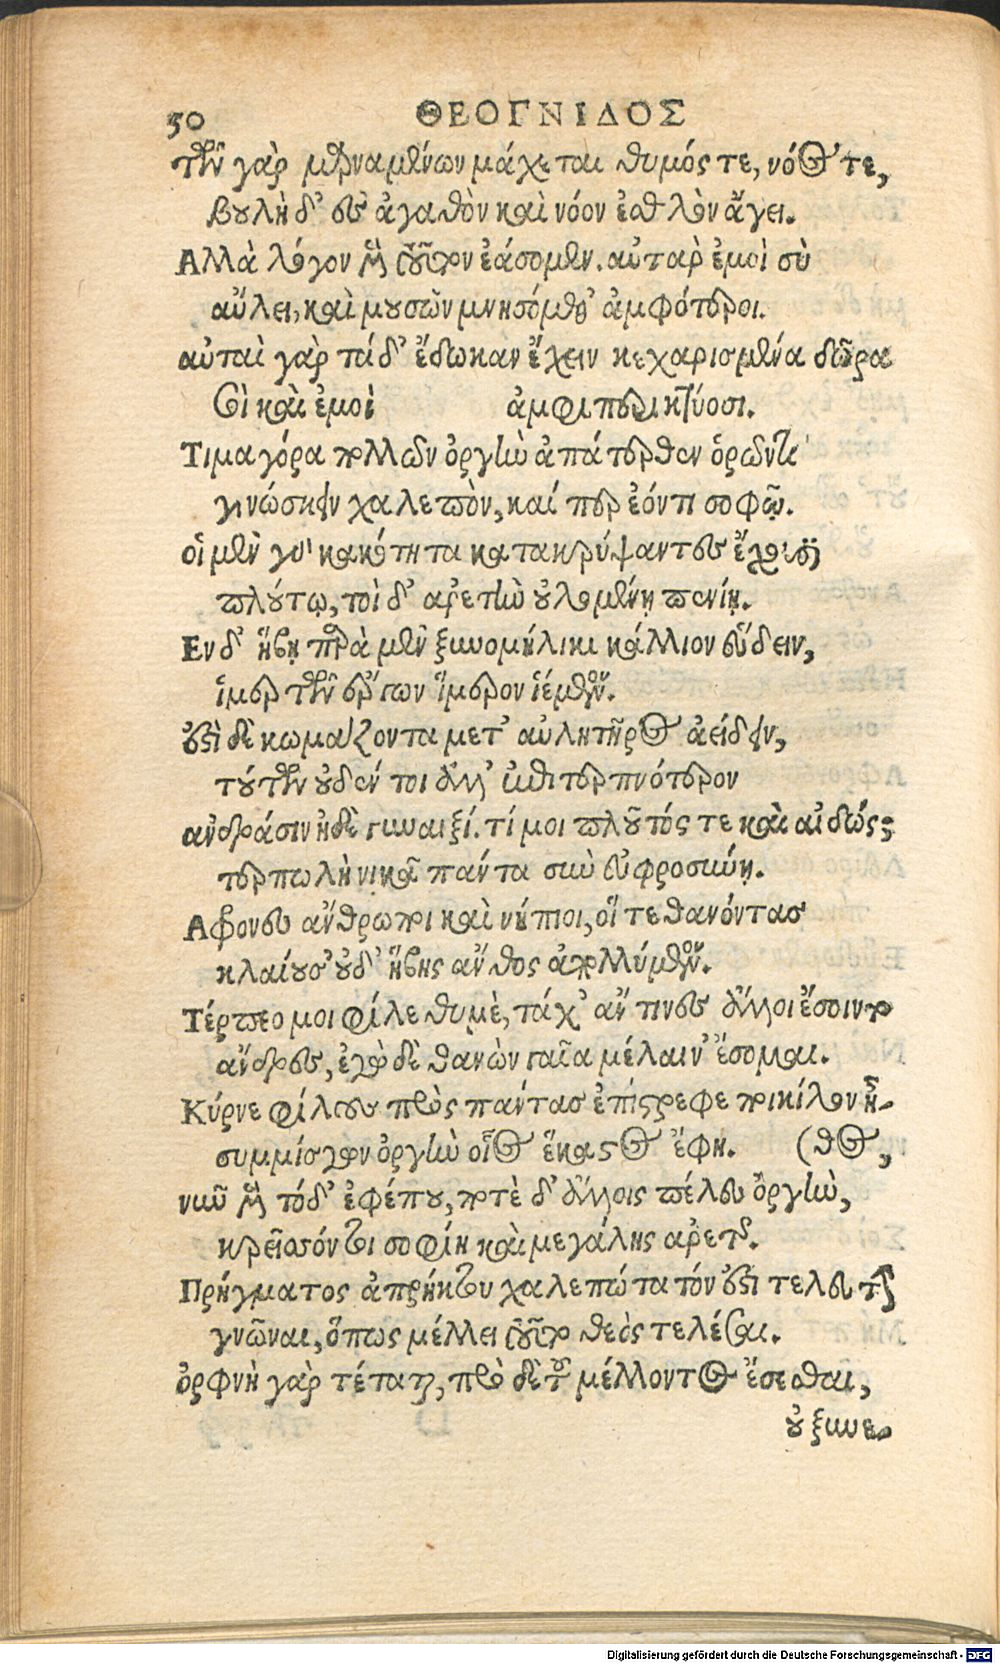 50 ΘΕΟΓΝΙΔΟΣ
τῶν γὰρ μαρναμένων μάχεται θυμός τε, νόος τε,
βουλὴ δ' εἰς ἀγαθὸν καὶ νόον ἐσθλὸν ἄγει.
Αλλὰ λόγον μὲν τοῦτον ἐάσομεν. αὐτὰρ ἐμοὶ σὺ
αὔλει, καὶ μουσῶν μνησόμεθ' ἀμφότεροι.
αὐταὶ γὰρ τάδ' ἔδωκαν ἔχειν κεχαρισμένα δῶρα
σοὶ καὶ ἐμοὶ ἀμφιπερικτύοσι.
Τιμαγόρα πολλῶν ὀργὴν ἀπάτερθεν ὁρῶντι
γινώσκειν χαλεπὸν, καί περ ἐόντι σοφῷ.
οἱ μὲν γὰρ κακότητα κατακρύψαντες ἔχουσι
πλούτῳ, τοὶ δ' ἀρετὴν οὐλομένῃ πενίῃ.
Εν δ' ἥβῃ παρὰ μὲν ξυνομήλικι κάλλιον εὕδειν,
ἱμερτῶν ἔργων ἵμερον ἱέμενον.
ἔστι δὲ κωμάζοντα μετ' αὐλητῆρος ἀείδειν,
τούτων οὐδέν τοι ἄλλ' ἔπι τερπνότερον
ἀνδράσιν ἠδὲ γυναιξί. τί μοι πλοῦτός τε καὶ αἰδώς;
τερπωλὴ νικᾷ πάντα σὺν εὐφροσύνῃ.
Αφρονες ἄνθρωποι καὶ νήπιοι, οἵ τε θανόντας
κλαίουσ' οὐδ' ἥβης ἄνθος ἀπολλύμενον.
Τέρπεο μοι φίλε θυμὲ, τάχ' ἄν τινες ἄλλοι ἔσοιντο
ἄνδρες, ἐγὼ δὲ θανὼν γαῖα μέλαιν' ἔσομαι.
Κύρνε φίλους πρὸς πάντας ἐπίστρεφε ποικίλον ἦ-
συμμίσγων ὀργὴν οἷος ἕκαστος ἔφη. (θος,
νῦν μὲν τόδ' ἐφέπου, ποτὲ δ' ἀλλοῖς πέλευ ὀργὴν,
κρεῖσσόν τοι σοφίη καὶ μεγάλης ἀρετῆς.
Πρήγματος ἀπρήκτου χαλεπώτατόν ἐστι τελευτὴν
γνῶναι, ὅπως μέλλει τοῦτο θεὸς τελέσαι.
ὀρφνὴ γὰρ τέταται, πρὸ δὲ τοῦ μέλλοντος ἔσεσθαι,
οὐ ξυνε-
Digitalisierung gefördert durch die Deutsche Forschungsgemeinschaft - DFG